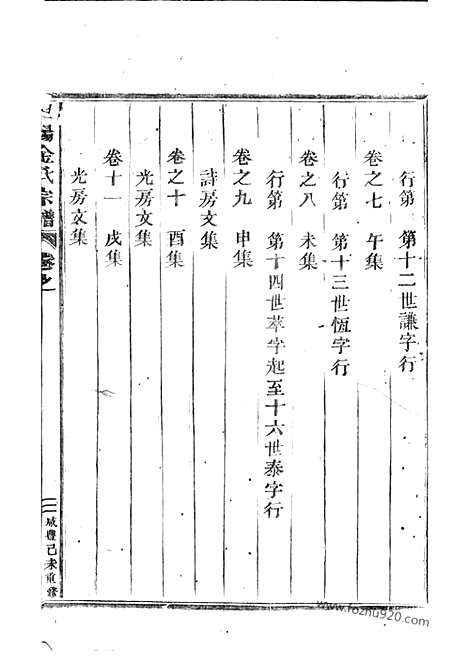 行第　第十二世謙字行
卷之七　午集
行第　第十三世恆字行
卷之八　未集
行第　第十四世萃字起至十六世泰字行
卷之九　申集
詩房文集
卷之十　酉集
光房文集
卷十一　戌集
光房文集
金氏宗譜　卷之一
咸豐己未重修
www.fozhu920.com